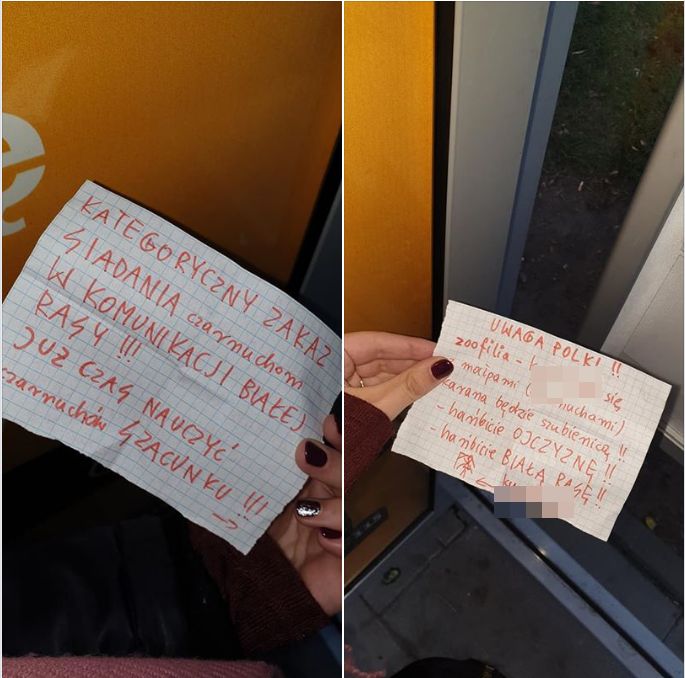 ę
KATEGORYCZNY ZAKAZ
SIADANIA czarnuchom
W KOMUNIKACJI BIAŁEJ
RASY !!!
JUŻ CZAS NAUCZYĆ
czarnuchów SZACUNKU !!!
→
UWAGA POLKI !!
zoofilia - się
z małpami
karana będzie szubienicą !!
- hańbicie OJCZYZNĘ !!
- hańbicie BIAŁĄ RASĘ !!
←